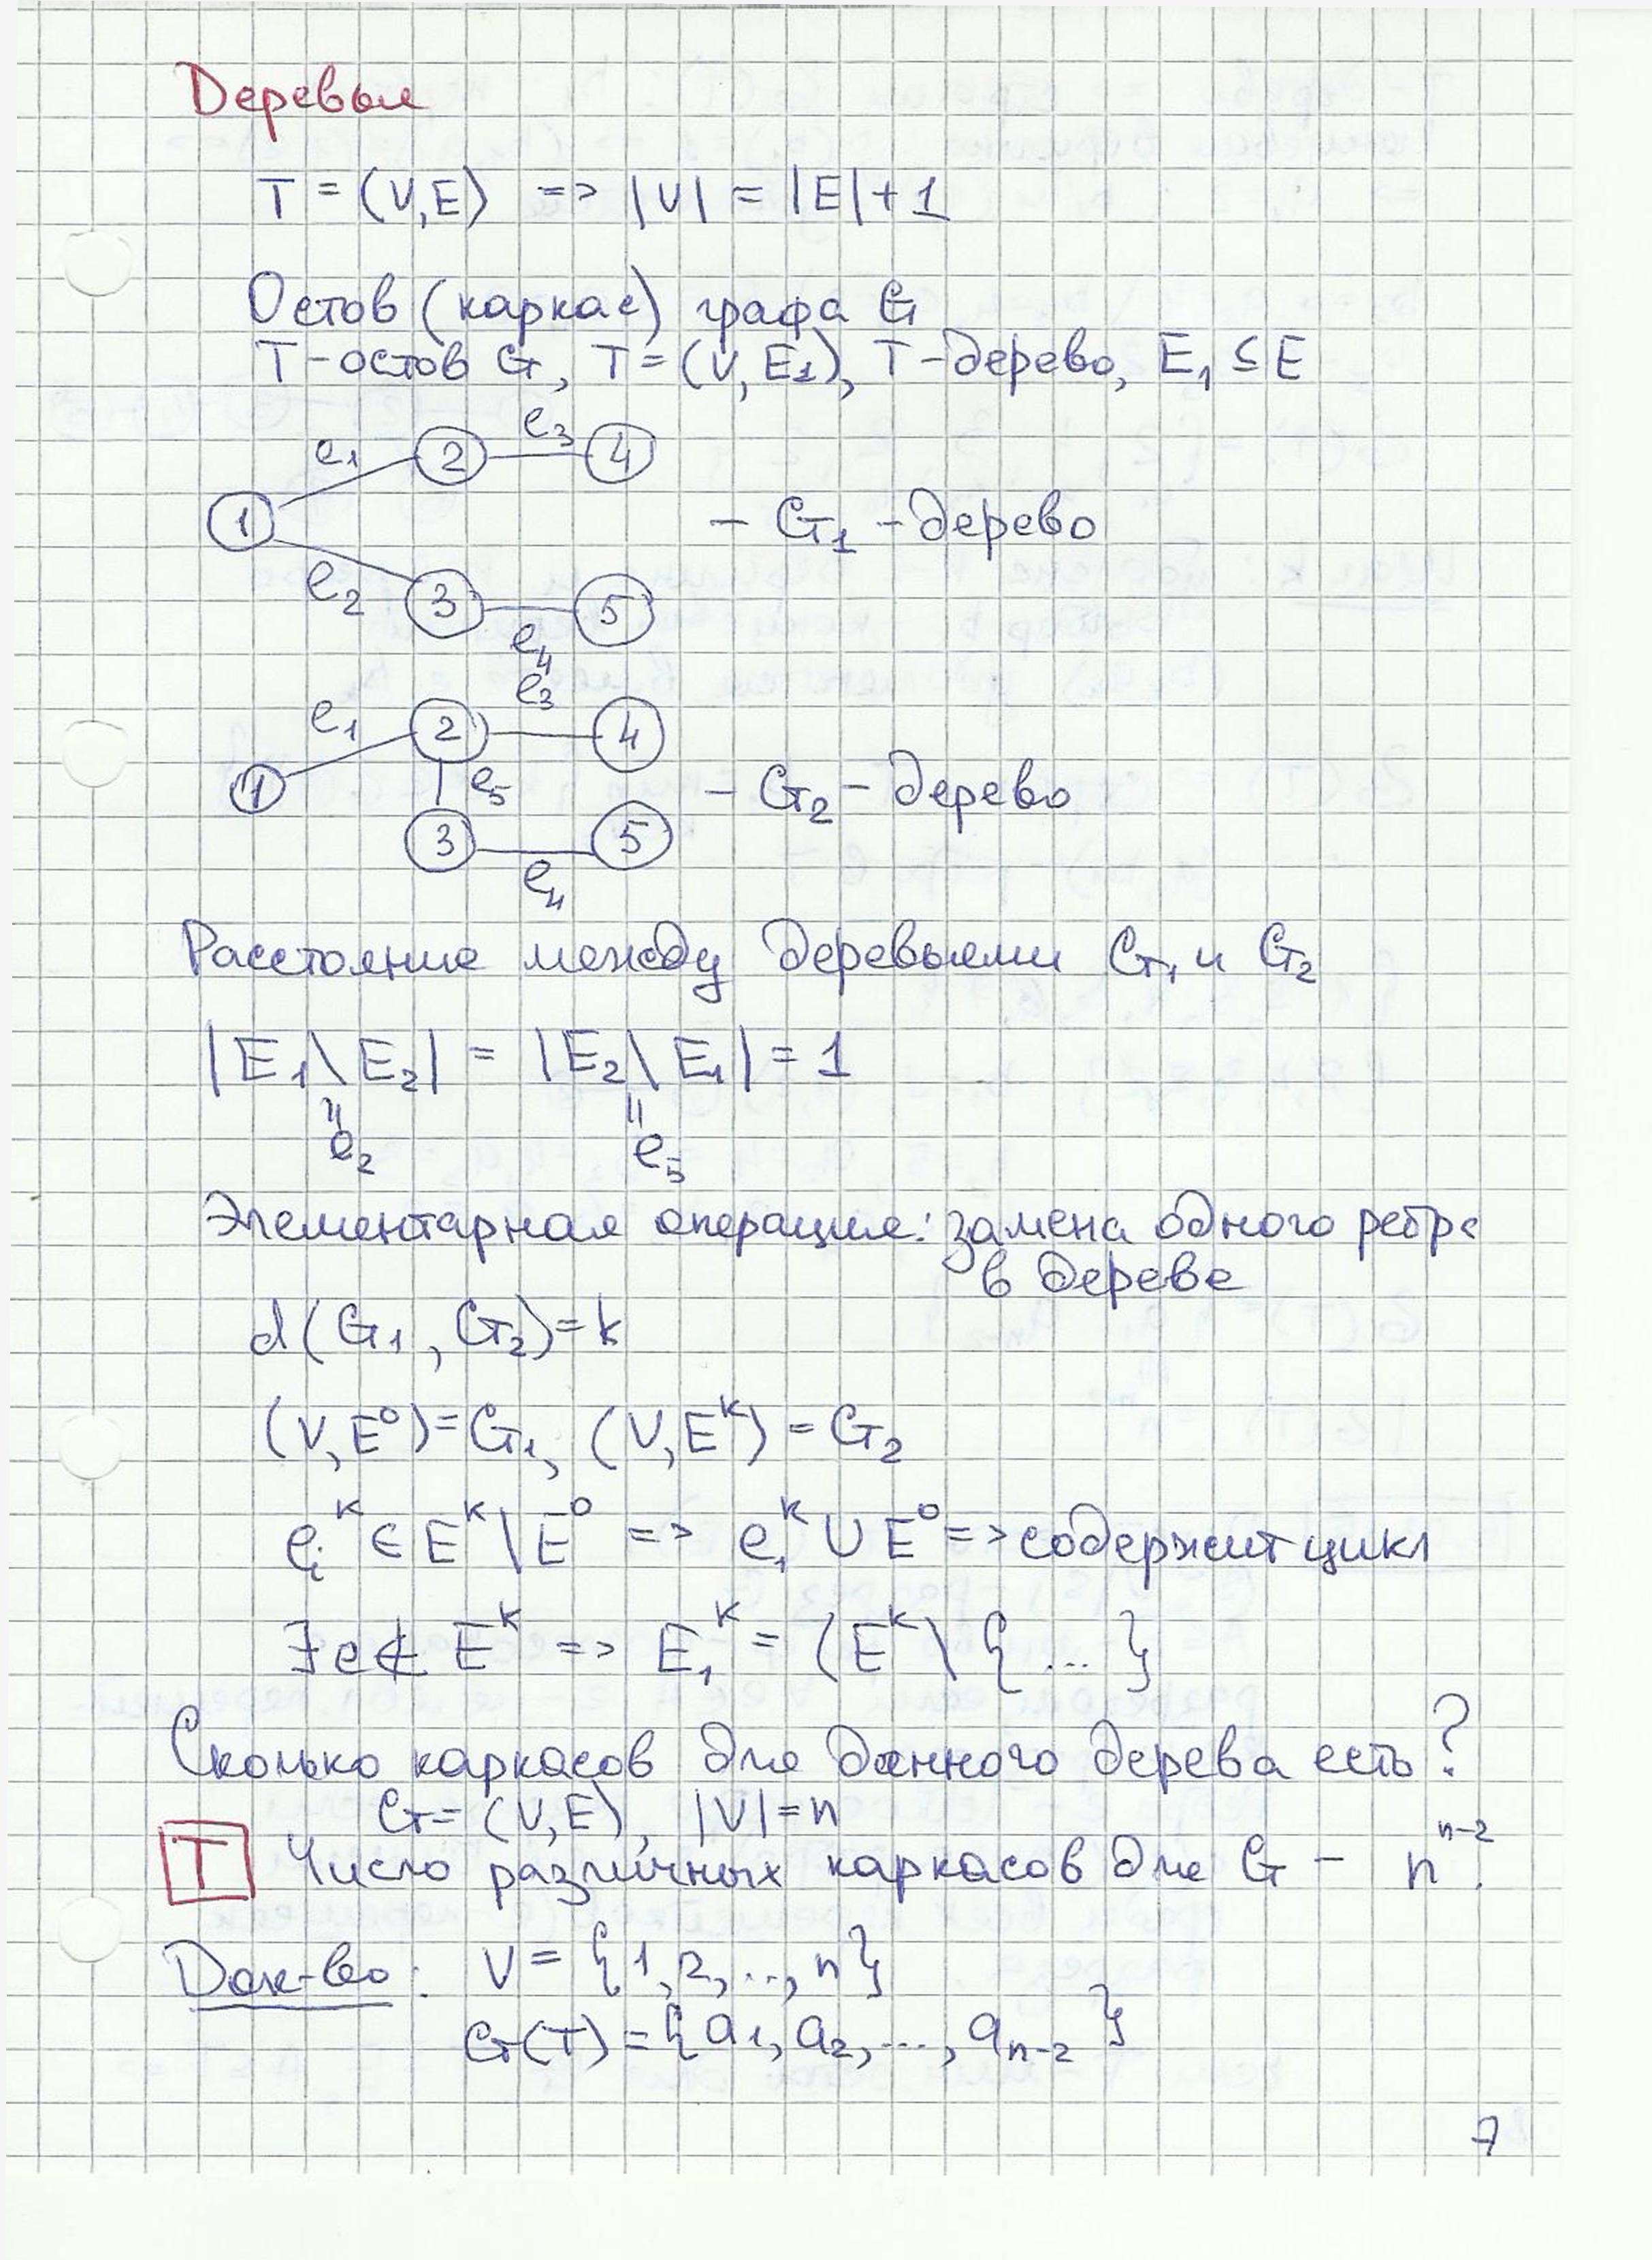 Деревья
T = (V,E) => |V| = |E|+1
Остов (каркас) графа G
T-остов G, T=(V,E₁), T-дерево, E₁ ⊆ E
e₁ 2 e₃ 4
1 - G₁ - дерево
e₂ 3 5
e₄
e₃
e₁ 2 4
1 e₅ - G₂ - дерево
3 5
e₄
Расстояние между деревьями G₁ и G₂
|E₁\E₂| = |E₂\E₁| = 1
" "
e₂ e₅
Элементарная операция: замена одного ребра
в дереве
d(G₁, G₂)=k
(V,E⁰)=G₁, (V,Eᵏ)=G₂
eᵢᵏ ∈ Eᵏ\E⁰ => e₁ᵏ ∪ E⁰ => содержит цикл
∃e∉ Eᵏ => E₁ᵏ = (Eᵏ\{...}
Сколько каркасов для данного дерева есть?
G=(V,E), |V|=n
T Число различных каркасов для G - nⁿ⁻².
Док-во: V = {1,2,...,n}
G(T)={a₁,a₂,...,aₙ₋₂}
7